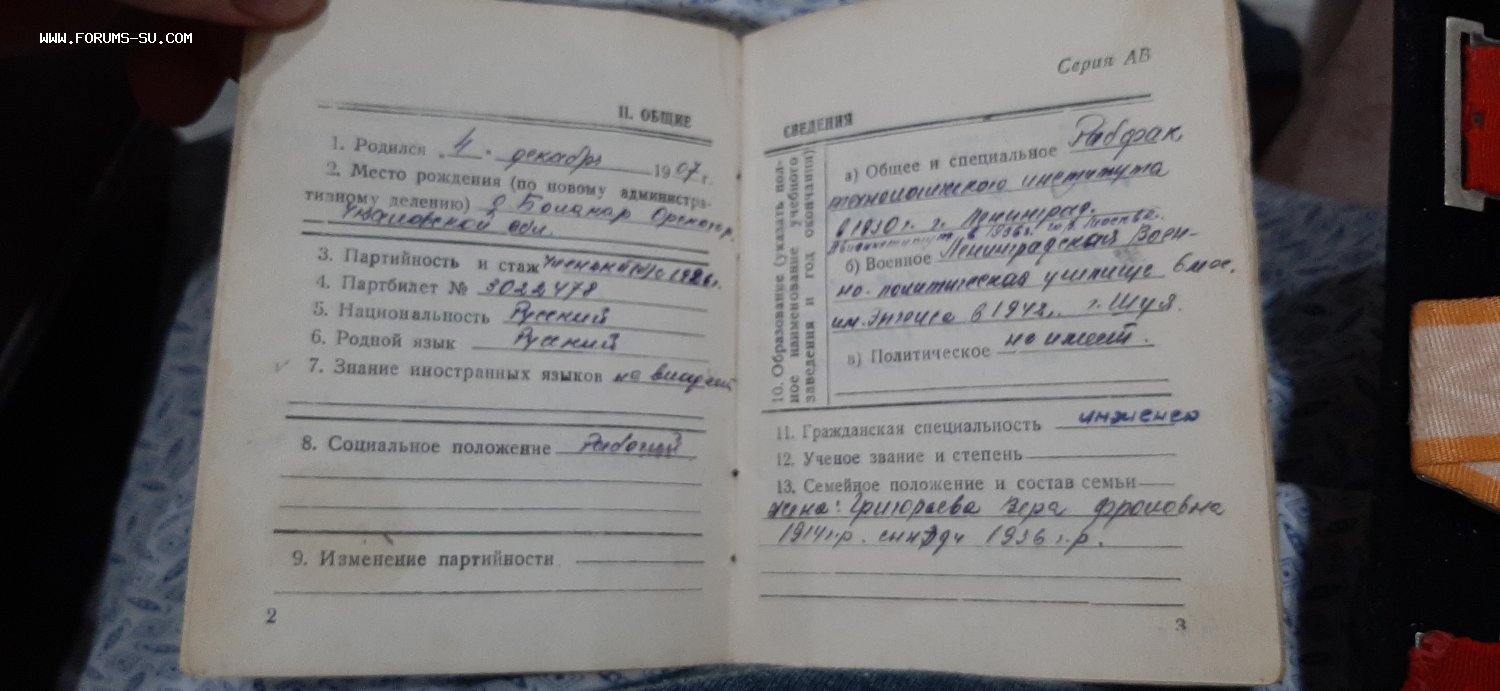 WWW.FORUMS-SU.COM
II. ОБЩИЕ
1. Родился „4" декабря 1907 г.
2. Место рождения (по новому администра-
тивному делению)
обл.
3. Партийность и стаж
4. Партбилет № 3022478
5. Национальность Русский
6. Родной язык Русский
7. Знание иностранных языков не владеет
8. Социальное положение Рабочий
9. Изменение партийности
2
Серия АВ
СВЕДЕНИЯ
10. Образование (указать пол-
ное наименование учебного
заведения и год окончания)
а) Общее и специальное Рабфак
технологического института
в 1930 г. г. Ленинград.
Авиаинститут в 1936 г. Москва.
б) Военное Ленинградская Воен-
но-политическая училище
им. Энгельса в 1942 г. г. Шуя.
в) Политическое не имеет.
11. Гражданская специальность инженер
12. Ученое звание и степень
13. Семейное положение и состав семьи
жена: Григорьева Вера Фроловна
1914 г.р. сын 1936 г.р.
3